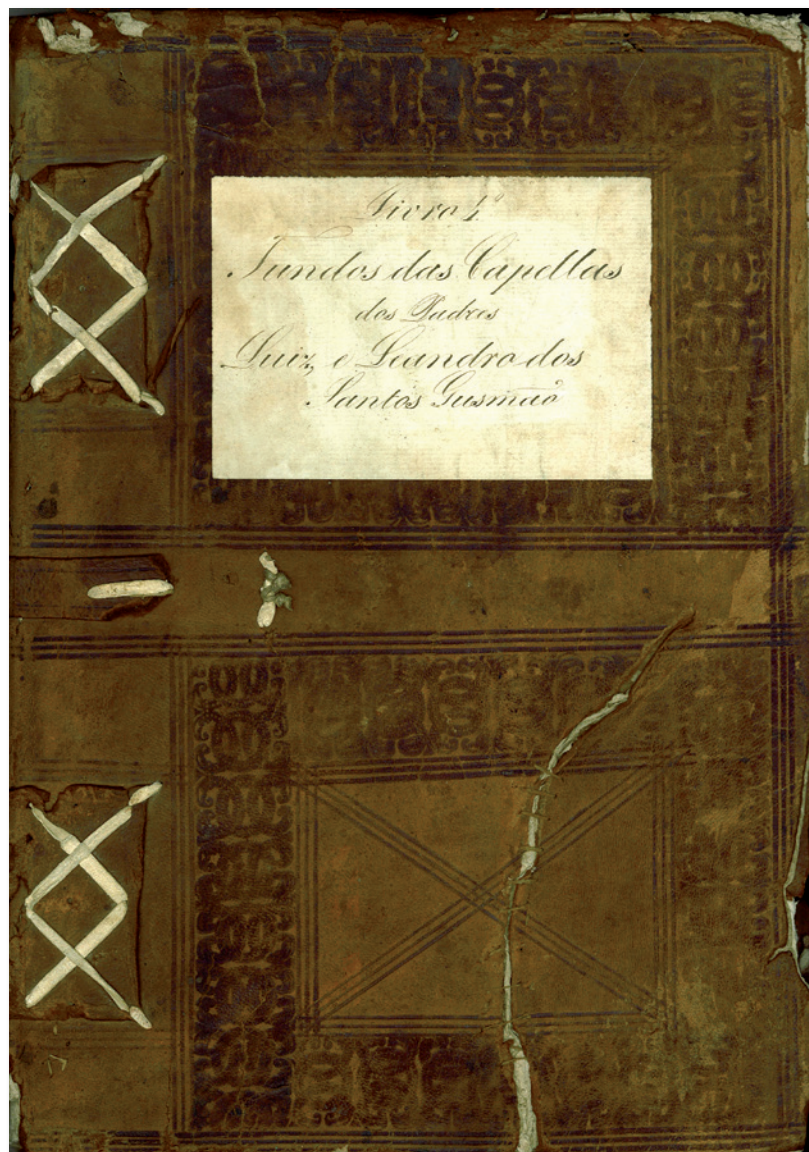 Livro 1º
Fundos das Capellas
dos Padres
Luiz, e Leandro dos
Santos Gusmaõ